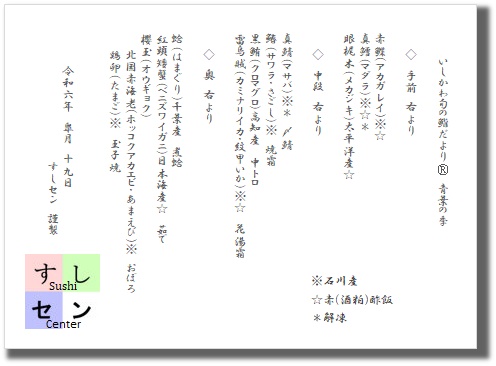 いしかわ旬の鮨だより® 青葉の季
◇ 手前 右より
赤鰈(アカガレイ)※☆
真鱈(マダラ)※☆＊
眼梶木(メカジキ)太平洋産☆
◇ 中段 右より
真鯖(マサバ)※＊ 〆鯖
鰆(サワラ・さごし)※ 焼霜
黒鮪(クロマグロ)高知産 中トロ
雷烏賊(カミナリイカ・紋甲いか)※☆ 花湯霜
◇ 奥 右より
蛤(はまぐり)千葉産 煮蛤
紅頭矮蟹(ベニズワイガニ)日本海産☆ 茹で
櫻玉(オウギョク)
北国赤海老(ホッコクアカエビ・あまえび)※ おぼろ
鶏卵(たまご)※ 玉子焼
令和六年 皐月 十九日
すしセン 謹製
※石川産
☆赤(酒粕)酢飯
＊解凍
すし
Sushi
セン
Center